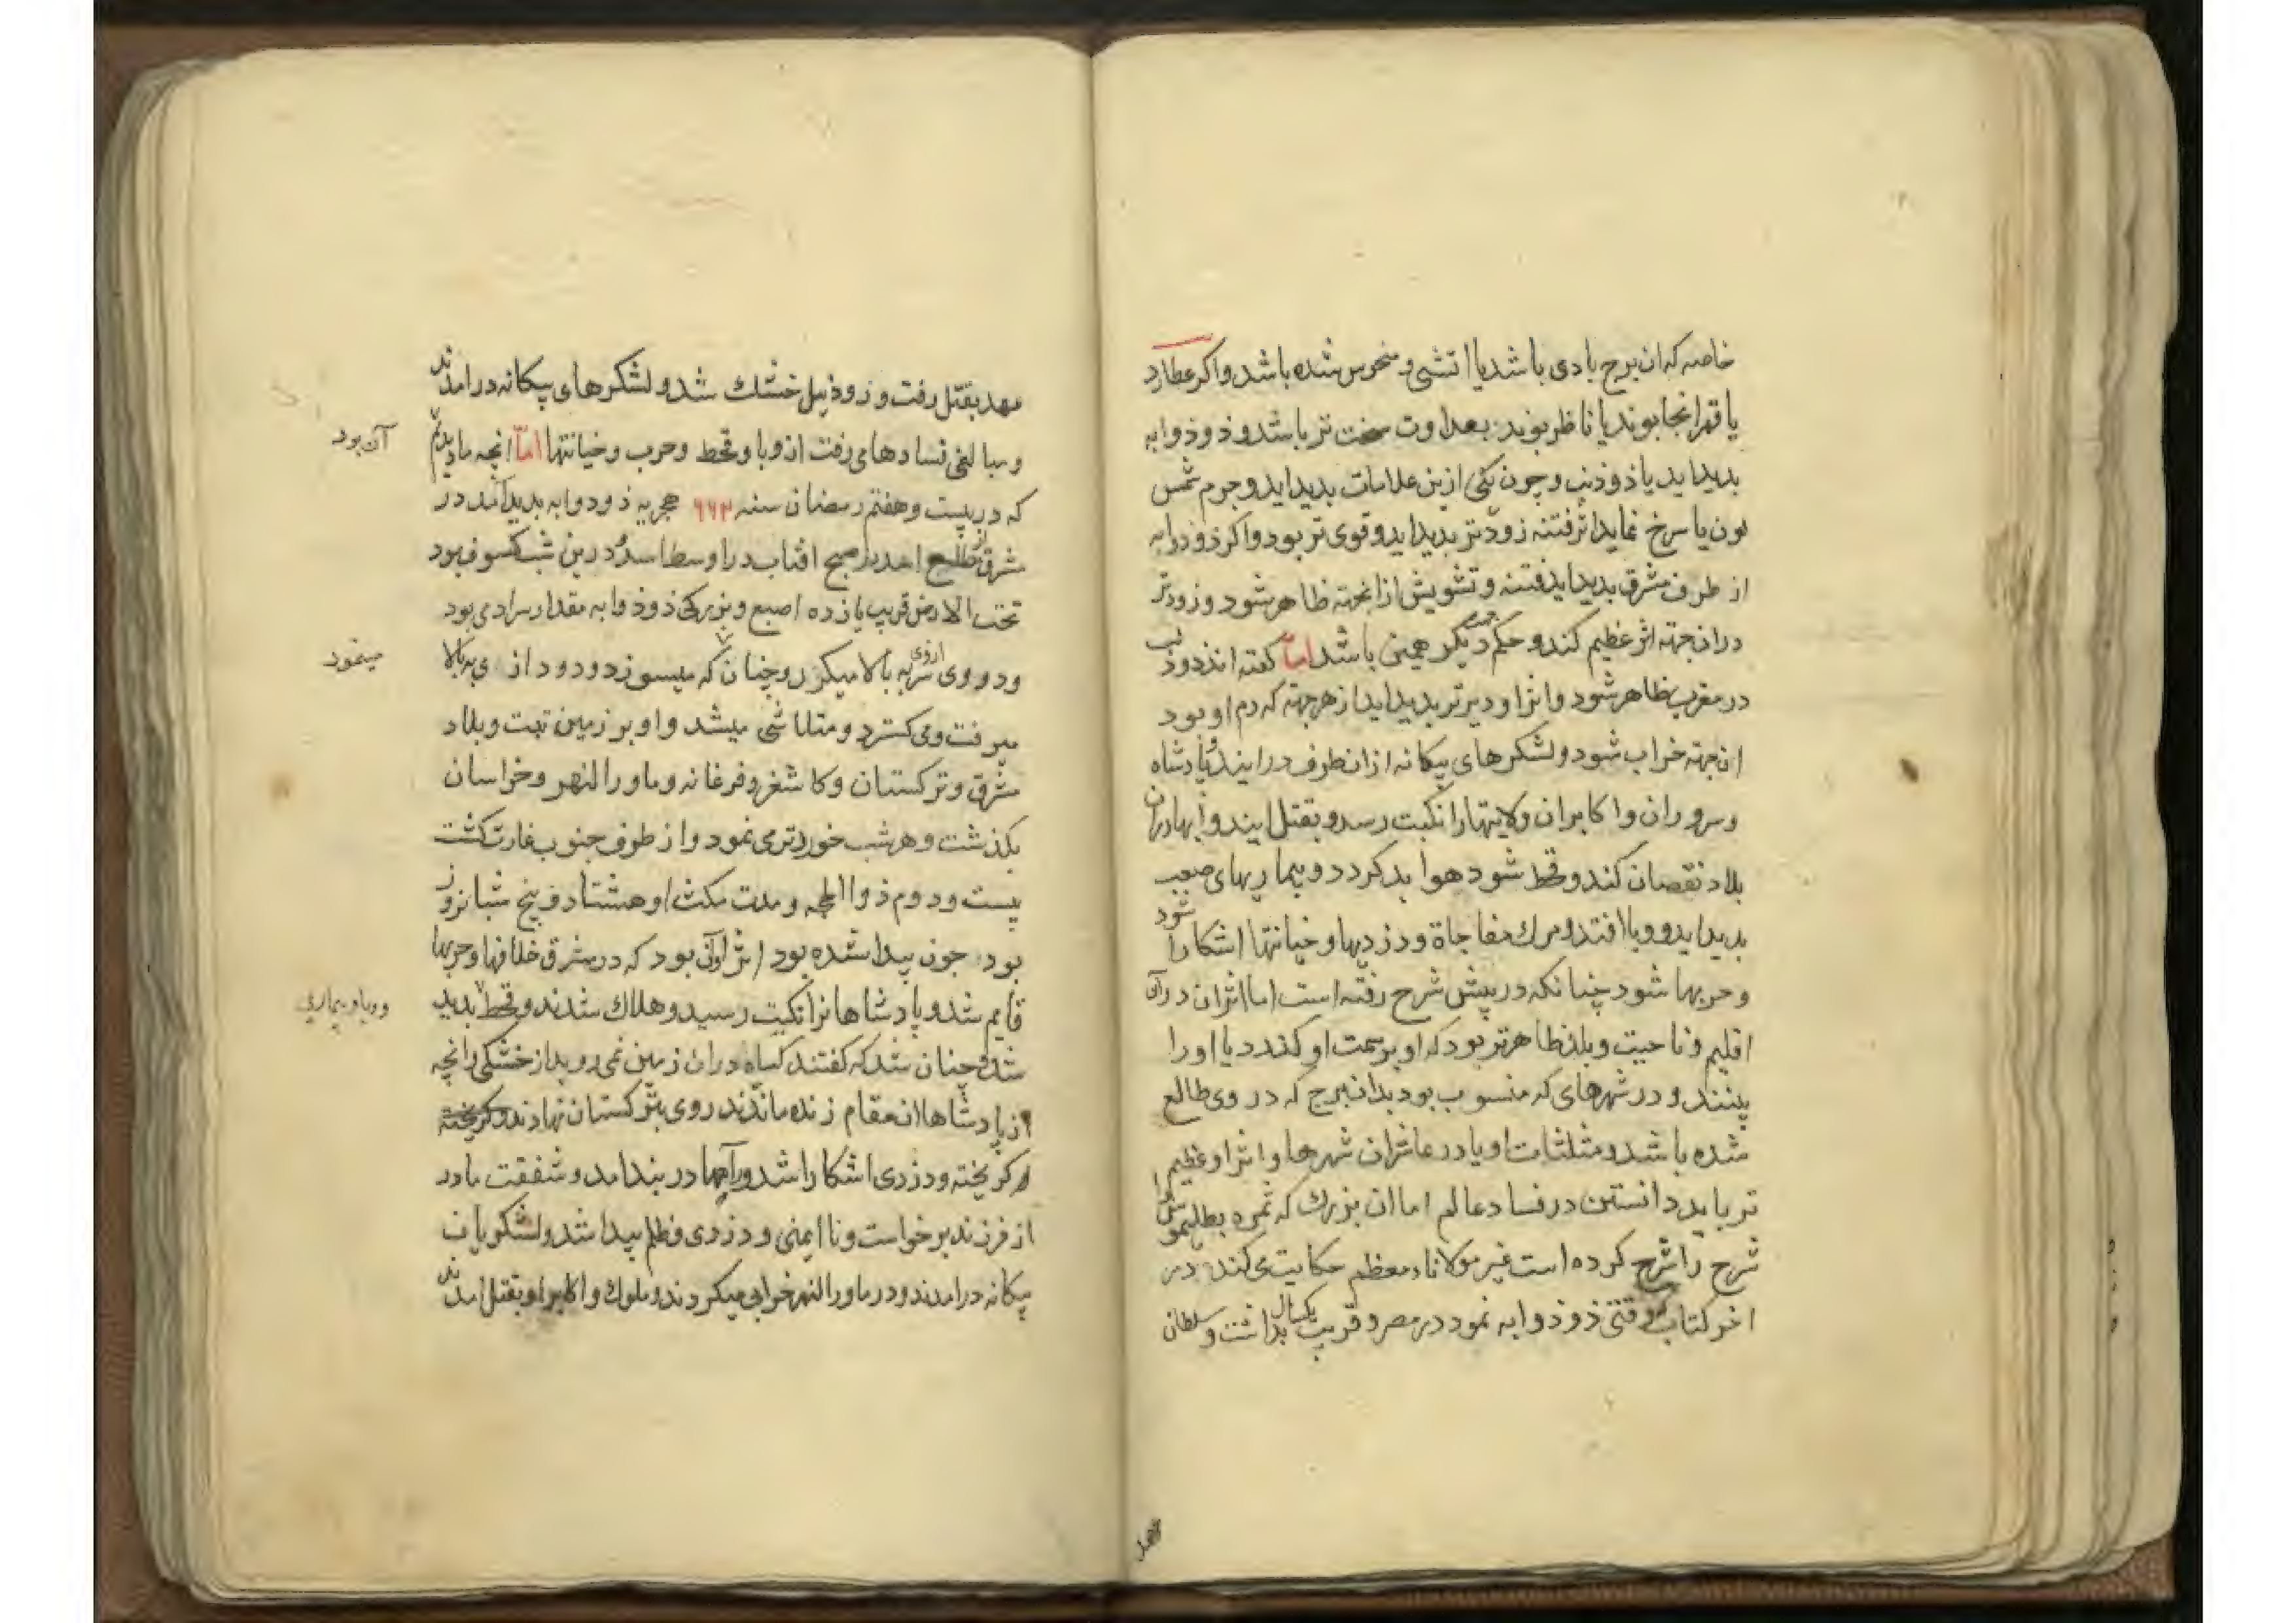 خاصه که ان برج بادی باشد یا اتشی و منحوس شده باشد و اکر عطارد
یا قمر انجا بوند یا ناظر بوند بعداوت سخت تر باشد و ذو ذوابه
بدید اید یا ذو ذنب و چون یکی ازین علامات بدید اید و جرم شمس
لون یا سرخ نماید اثر فتنه زودتر بدید اید و قوی تر بود و اکر ذو ذوابه
از طرف مشرق بدید اید فتنه و تشویش از انجهته ظاهر شود و زودتر
دران جهته اثر عظیم کند و حکم دیکر همین باشد اما کفته اند ذو ذنب
در مغرب ظاهر شود و اثر او دیرتر بدید اید از هر جهته که دم او بود
ان جهته خراب شود و لشکرهای بیکانه ازان طرف در ایند و پادشاه
و سروران و اکابران ولایتها را نکبت رسد و بقتل ایند و ابها دران
بلاد نقصان کند و قحط شود هوا بد کردد و بیماریهای صعب
بدید اید و وبا افتد و مرك مفاجاة و دزدیها و خیانتها اشکارا شود
و حربها شود چنانکه در پیش شرح رفته است اما اثر ان در آن
اقلیم و ناحیت و بلد ظاهرتر بود که او بر سمت او کذرد یا او را
بینند و در شهرهای که منسوب بود بدان برج که در وی طالع
شده باشد و مثلثات او یا در عاشر ان شهرها و اثر او عظیم
تر باید دانستن در فساد عالم اما ان بزرك که ثمره بطلیموس را
شرح را شرح کرده است غیر مولاناء معظم حکایت می کند در
اخر کتاب که وقتی ذو ذوابه نمود در مصر و قریب یکسال بداشت و سلطان
مهد
مهد بقتل رفت و رود نیل خشك شد و لشکرهای بیکانه در امدند
و مبالغی فسادهای رفت از وبا و قحط و حرب و خیانتها اما انچه ما دیدیم
آن بود
که در بیست و هفتم رمضان سنه ۶۶۲ هجریه ذو ذوابه بدید آمد در
مشرق طالع امد بر صبح افتاب در اوسط اسد و درین شب کسوف بود
تحت الارض قریب یازده اصبع و بزرکی ذو ذوابه مقدار سرادی بود
و دو وی از وی سر به بالا میکرد و چنان که میسوزد و دود از وی ببالا
مینمود
میرفت و می کسترد و متلاشی میشد و او بر زمین تبت و بلاد
مشرق و ترکستان و کاشغر و فرغانه و ماورالنهر و خراسان
بکذشت و هر شب خوردتر می نمود و از طرف جنوب غارت کشت
بیست و دوم ذو الحجه و مدت مکث او هشتاد و پنج شبانروز
بود چون پیدا شده بود اثر او آن بود که در مشرق خلافها و حربها
قایم شد و پادشاهانرا نکبت رسید و هلاك شدند و قحط بدید
و وبا و بیماری
شد و چنان شد که کفتند کیاه دران زمین نمی روید از خشکی و انچه
از پادشاهان مقام زنده ماندند روی بترکستان نهادند و کریخته
و کریخته و دزدی اشکارا شد و رآهها در بند امد و شفقت مادر
از فرزند برخواست و نا ایمنی و دزدی و ظلم پیدا شد و لشکریان
بیکانه در امدند و در ماورالنهر خرابی میکردند و ملوك و اکابر او بقتل امدند